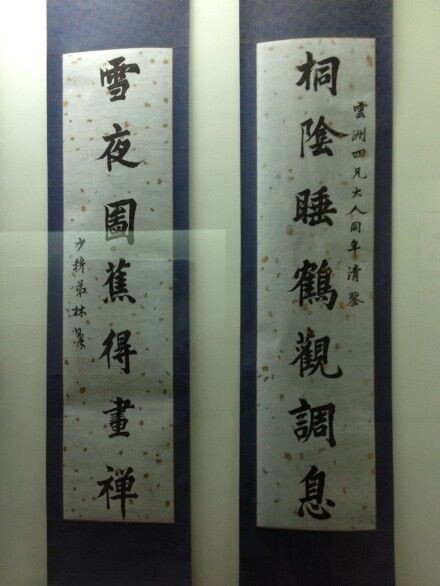 桐陰睡鶴觀調息
雲洲四兄大人同年清鑒
雪夜圖蕉得畫禪
少穆弟林